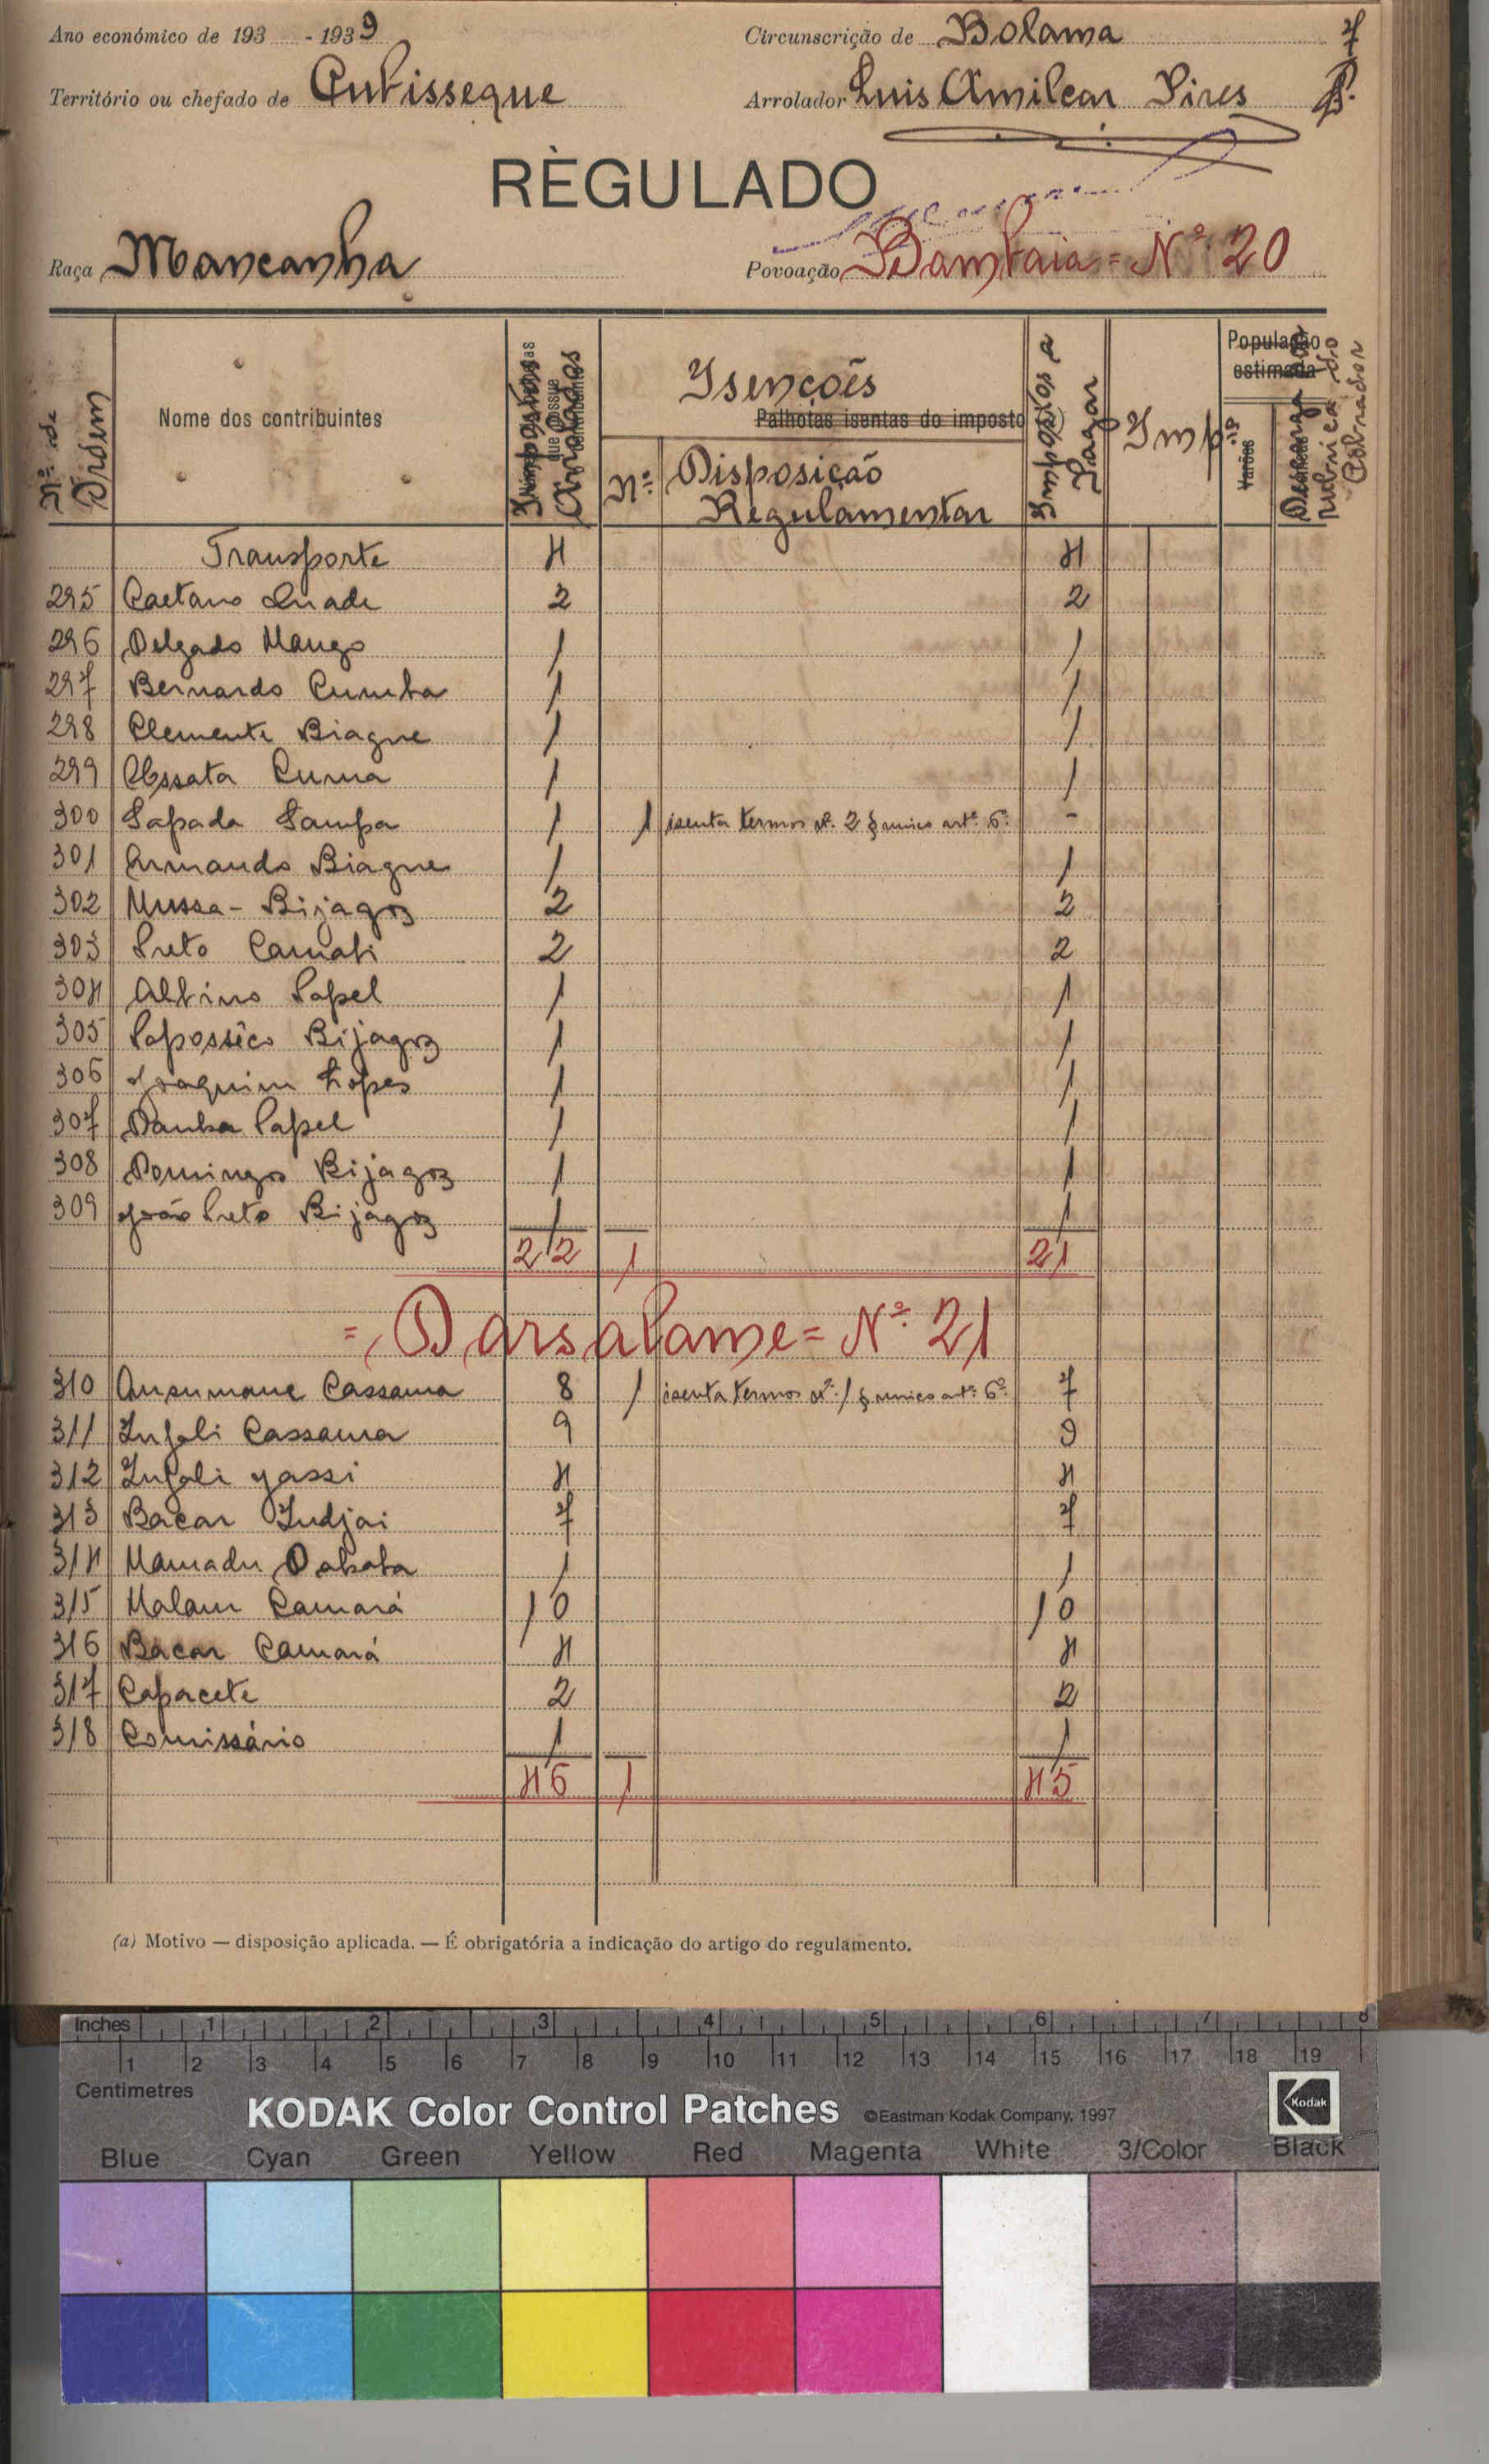 Ano económico de 193 - 1939 Circunscrição de Bolama 7
Território ou chefado de Cutisseque Arrolador Luis Amilcar Pires
RÈGULADO
Raça Mancanha Povoação Bambaia = Nº 20
Nº de Ordem Nome dos contribuintes Impostos Arrolados Isenções Impostos a Pagar Imp. População estimada
Palhotas isentas do imposto Varões rubrica do Cobrador
Nº Disposição Regulamentar
Transporte 4 4
295 Caetano Quade 2 2
296 Delgado Mango 1 1
297 Bernardo Cumba 1 1
298 Clemente Biague 1 1
299 Assata Cuma 1 1
300 Sápada Sampa 1 1 isenta termos nº 2 § unico artº 6º -
301 Armando Biague 1 1
302 Mussa - Bijagoz 2 2
303 Preto Camati 2 2
304 Albino Papel 1 1
305 Papossêco Bijagoz 1 1
306 Joaquim Lopes 1 1
307 Danha Papel 1 1
308 Domingos Bijagoz 1 1
309 João Preto Bijagoz 1 1
22 1 21
= Darsalame = Nº 21
310 Ansumane Cassama 8 1 isenta termos nº 1 § unico artº 6º 7
311 Infali Cassama 9 9
312 Infali Jassi 4 4
313 Bacar Indjai 7 7
314 Mamadu Dabaha 1 1
315 Malam Camará 10 10
316 Bacar Camará 4 4
317 Capacete 2 2
318 Comissário 1 1
46 1 45
(a) Motivo — disposição aplicada. — É obrigatória a indicação do artigo do regulamento.
Inches 1 2 3 4 5 6 7 8
1 2 3 4 5 6 7 8 9 10 11 12 13 14 15 16 17 18 19
Centimetres
KODAK Color Control Patches ©Eastman Kodak Company, 1997 Kodak
Blue Cyan Green Yellow Red Magenta White 3/Color Black